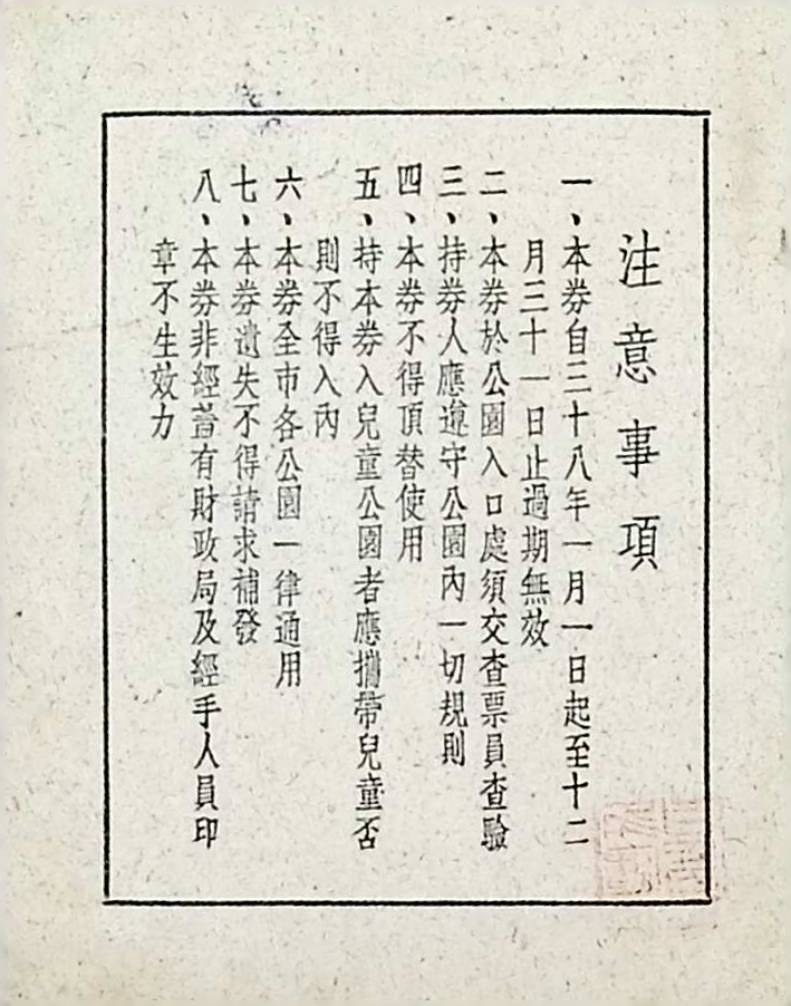 注意事項
一、本券自三十八年一月一日起至十二
月三十一日止過期無效
二、本券於公園入口處須交查票員查驗
三、持券人應遵守公園內一切規則
四、本券不得頂替使用
五、持本券入兒童公園者應攜帶兒童否
則不得入內
六、本券全市各公園一律通用
七、本券遺失不得請求補發
八、本券非經蓋有財政局及經手人員印
章不生效力